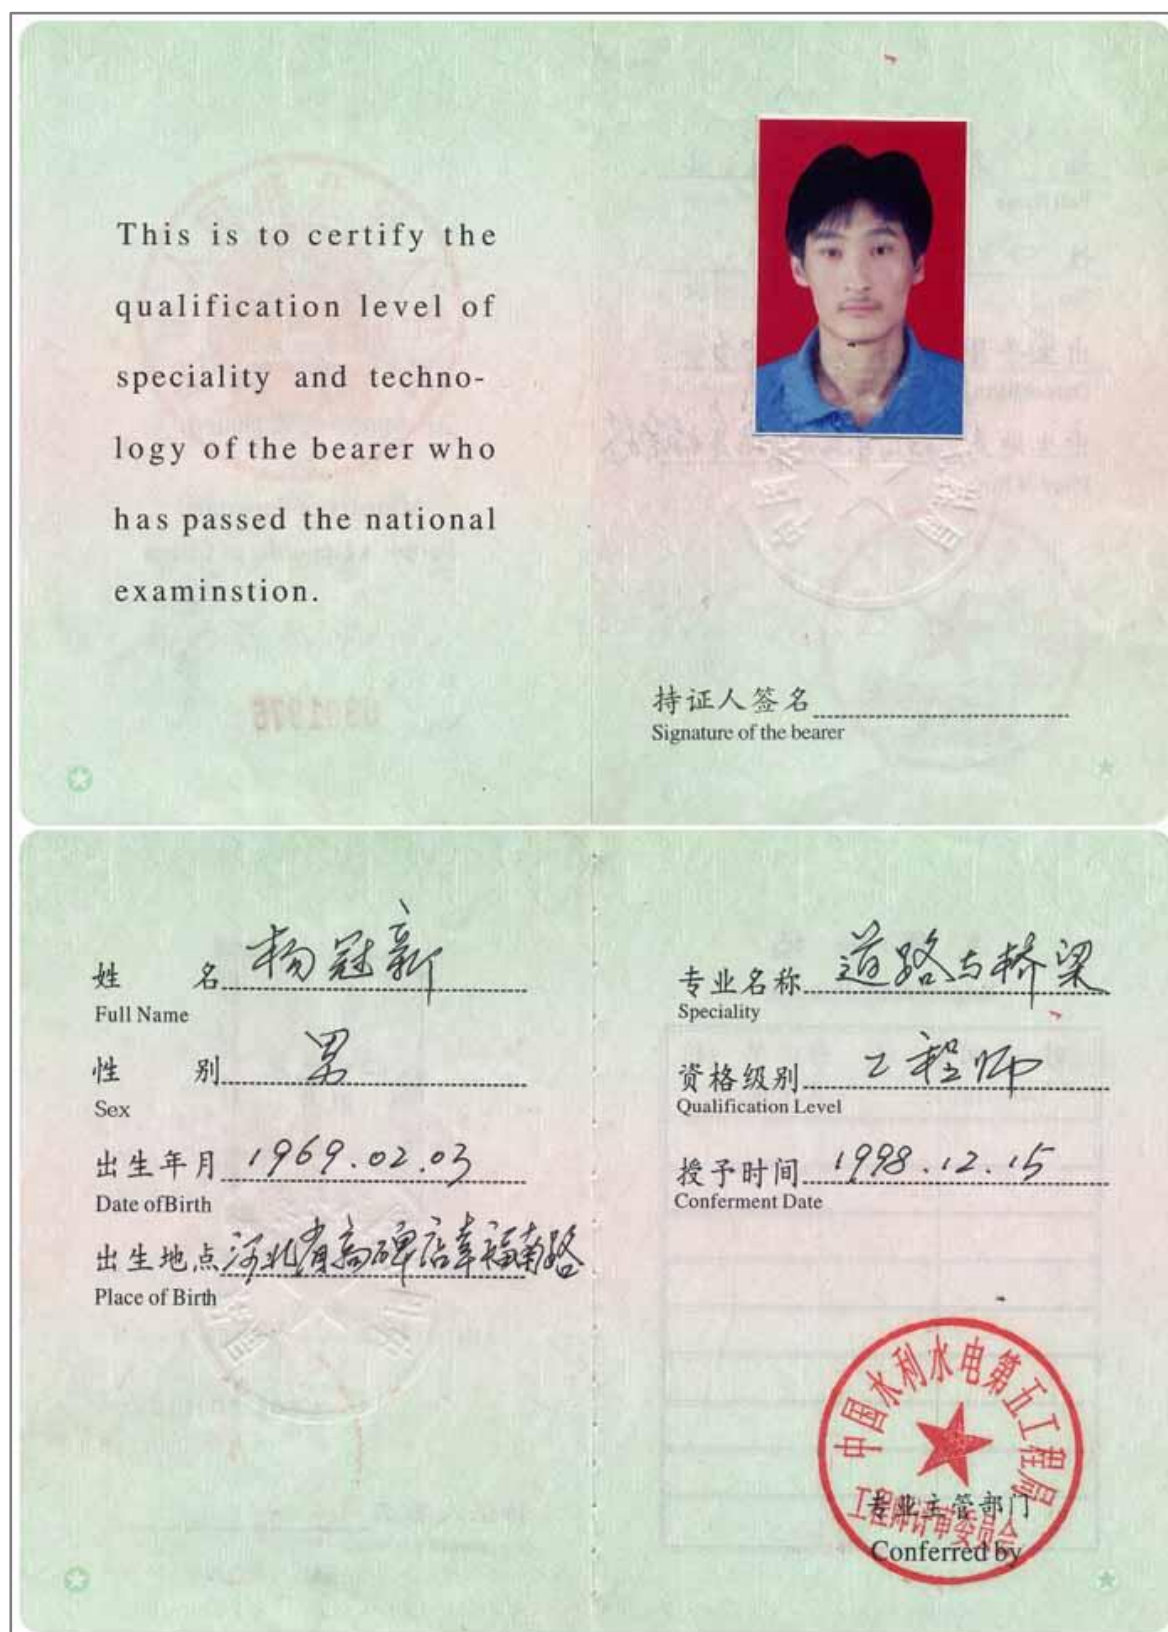 This is to certify the
qualification level of
speciality and techno-
logy of the bearer who
has passed the national
examinstion.
持证人签名
Signature of the bearer
姓 名 杨冠新
Full Name
性 别 男
Sex
出生年月 1969.02.03
Date of Birth
出生地点 河北省高碑店幸福南路
Place of Birth
专业名称 道路与桥梁
Speciality
资格级别 工程师
Qualification Level
授予时间 1998.12.15
Conferment Date
中国水利水电第五工程局
工程师评审委员会
专业主管部门
Conferred by